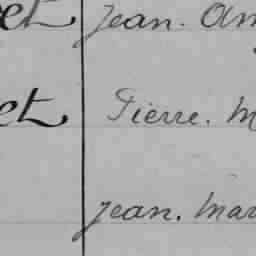 et Jean. Am
et Pierre. M
Jean. Mar